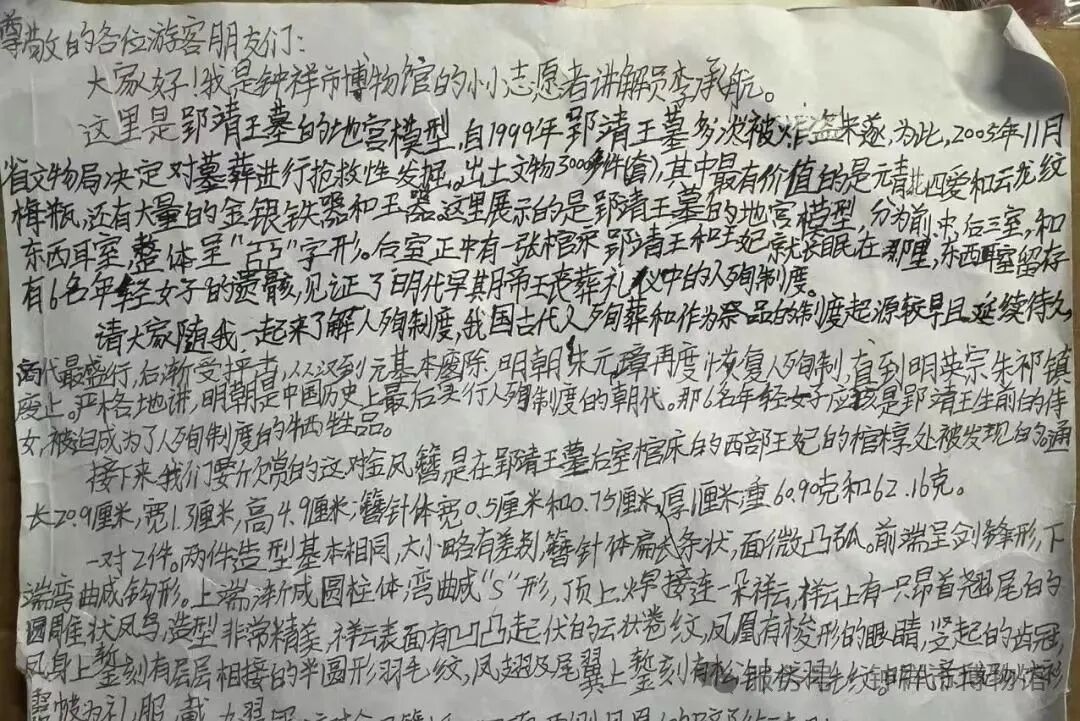 尊敬的各位游客朋友们：
大家好！我是钟祥市博物馆的小小志愿者讲解员李承航。
这里是郢靖王墓的地宫模型，自1999年郢靖王墓多次被炸盗未遂，为此，2005年11月
省文物局决定对墓葬进行抢救性发掘。出土文物3000多件(套)，其中最有价值的是元青花四爱和云龙纹
梅瓶，还有大量的金银铁器和玉器。这里展示的是郢靖王墓的地宫模型，分为前，中，后三室，和
东西耳室，整体呈“ ”字形。后室正中有一张棺床郢靖王和王妃就长眠在那里，东西耳室留存
有6名年轻女子的遗骸，见证了明代早期帝王丧葬礼仪中的人殉制度。
请大家随我一起来了解人殉制度，我国古代人殉葬和作为祭品的制度起源较早且延续持久，
商代最盛行，后渐受抨击，从汉到元基本废除，明朝朱元璋再度恢复人殉制，直到明英宗朱祁镇
废止。严格地讲，明朝是中国历史上最后实行人殉制度的朝代。那6名年轻女子应该是郢靖王生前的侍
女，被迫成为了人殉制度的牺牲品。
接下来，我们要欣赏的这对金凤簪是在郢靖王墓后室棺床的西部王妃的棺椁处被发现的。通
长20.9厘米，宽1.3厘米，高4.9厘米；簪针体宽0.5厘米和0.75厘米，厚1厘米；重60.90克和62.16克。
一对2件。两件造型基本相同，大小略有差别，簪针体扁长条状，面微凸弧。前端呈剑锋形，下
端弯曲成钩形。上端渐成圆柱体，弯曲成“S”形，顶上焊接连一朵祥云，祥云上有一只昂首翘尾的
圆雕状凤鸟，造型非常精美，祥云表面有凹凸起伏的云状卷纹，凤凰有梭形的眼睛，竖起的齿冠，
凤身上錾刻有层层相接的半圆形羽毛纹，凤翅及尾翼上錾刻有松针